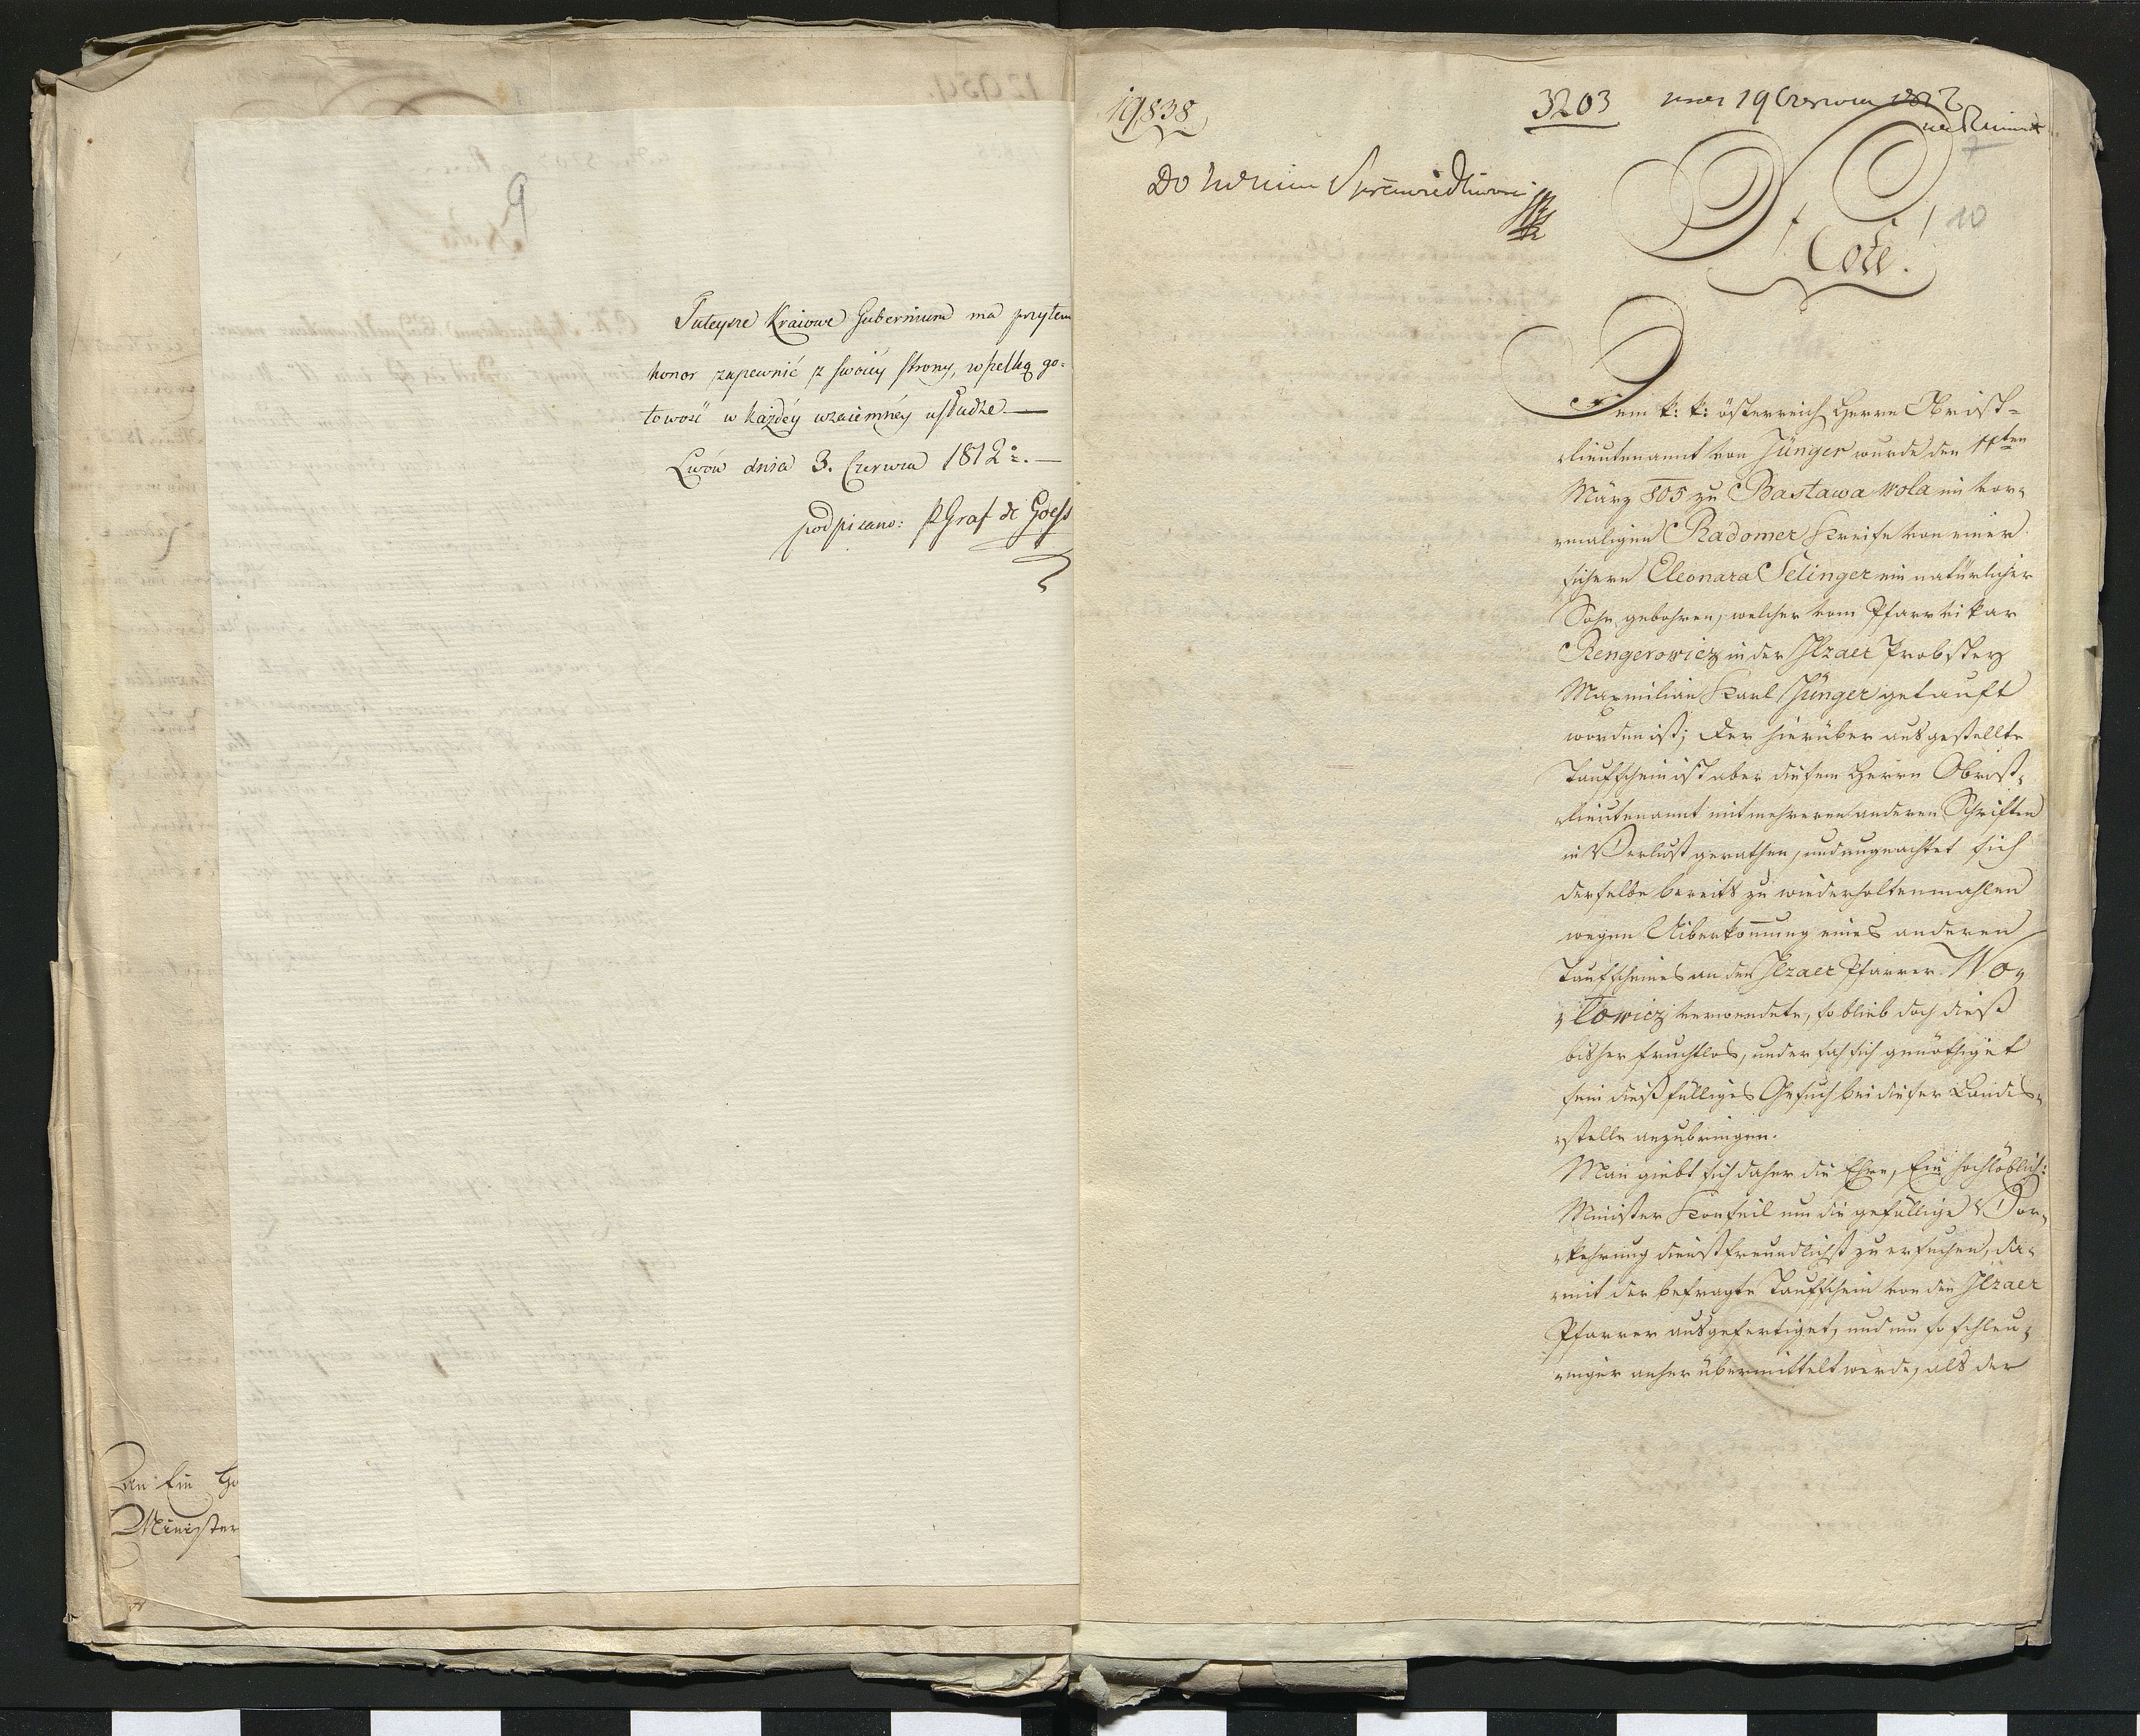 9
Tuteysze Kraiowe Gubernium ma przytem
honor zapewnić z swoiéy strony, wszelką go-
towość w każdéy wzaiemnéy usłudze —
Lwów dnia 3. Czerwca 1812. —
podpisano: P. Graf de Goess
An Ein
Minister
19838
3203 19 Czerwca 1812
Do
10
Note.
Dem k: k: österreich Herrn Obrist-
lieutenannt von Jünger wurde den 11ten
März 805 zu Bastawa Wola im vor-
maligen Radomer Kreise von einer
sichern Eleonara Selinger ein natürlicher
Sohn gebohren, welcher vom Pfarrvikar
Rengerowicz in der Ilzaer Probstey
Maxmilian Karl Jünger getauft
worden ist; der hierüber ausgestellte
Taufschein ist aber diesem Herrn Obrist-
lieutenannt mit mehreren anderen Schriften
in Verlust gerathen, und ungeachtet sich
derselbe bereits zu wiederholtenmahlen
wegen Uiberkom̄ung eines anderen
Taufscheines an den Ilzaer Pfarrer No-
towicz verwendete, so blieb doch dieß
bisher fruchtlos, und er sah sich genöthiget
sein dießfälliges Gesuch bei dieser Landes-
stelle anzubringen.
Man giebt sich daher die Ehre, Ein hochlöblich:
Minister Konseil um die gefällige Vor-
kehrung dienstfreundlichst zu ersuchen, da-
mit der befragte Taufschein von dem Ilzaer
Pfarrer ausgefertiget, und um so schleu-
niger anher übermittelt werde, als der